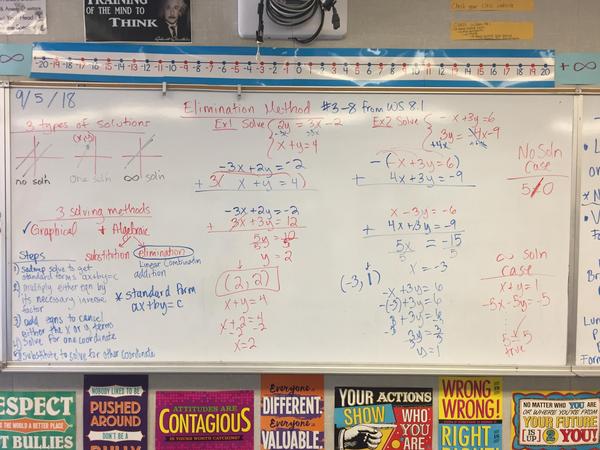 TRAINING
OF THE MIND TO
THINK
∞
-20 -19 -18 -17 -16 -15 -14 -13 -12 -11 -10 -9 -8 -7 -6 -5 -4 -3 -2 -1 0 1 2 3 4 5 6 7 8 9 10 11 12 13 14 15 16 17 18 19 20
+∞
9/5/18
Elimination Method #3-8 from WS 8.1
3 types of solutions
no soln
one soln
∞ soln
3 solving methods
✓ Graphical
Algebraic
substitution
elimination
Linear Combination
addition
Steps
solve to get
standard form ax+by=c
2) multiply either eqn by
its necessary inverse
factor
3) add eqns to cancel
either the x or y terms
4) Solve for one coordinate
5) substitute to solve for other coordinate
* standard form
ax+by=c
Ex1 Solve
2y = 3x-2
x+y=4
-3x+2y=-2
+ 3( x+y=4)
-3x+2y=-2
+ 3x+3y=12
5y=10
y=2
(2,2)
x+y=4
x+2=4
-2 -2
x=2
Ex2 Solve
-x+3y=6
3y=4x-9
-(-x+3y=6)
+ 4x+3y=-9
x-3y=-6
+ 4x+3y=-9
5x = -15
x=-3
(-3, 1)
-x+3y=6
-(-3)+3y=6
3+3y=6
3y=3
y=1
No Soln
case
5≠0
∞ Soln
case
x+y=1
-5x-5y=-5
5=5
true
RESPECT
BULLIES
NOBODY LIKES TO BE
PUSHED
AROUND
DON'T BE A
BULLY
ATTITUDES ARE
CONTAGIOUS
IS YOURS WORTH CATCHING?
Everyone is
DIFFERENT.
Everyone is
VALUABLE.
YOUR ACTIONS
SHOW WHO
YOU ARE
WRONG
WRONG!
RIGHT
NO MATTER WHO YOU ARE
OR WHERE YOU'RE FROM
YOUR FUTURE
IS UP 2 YOU!